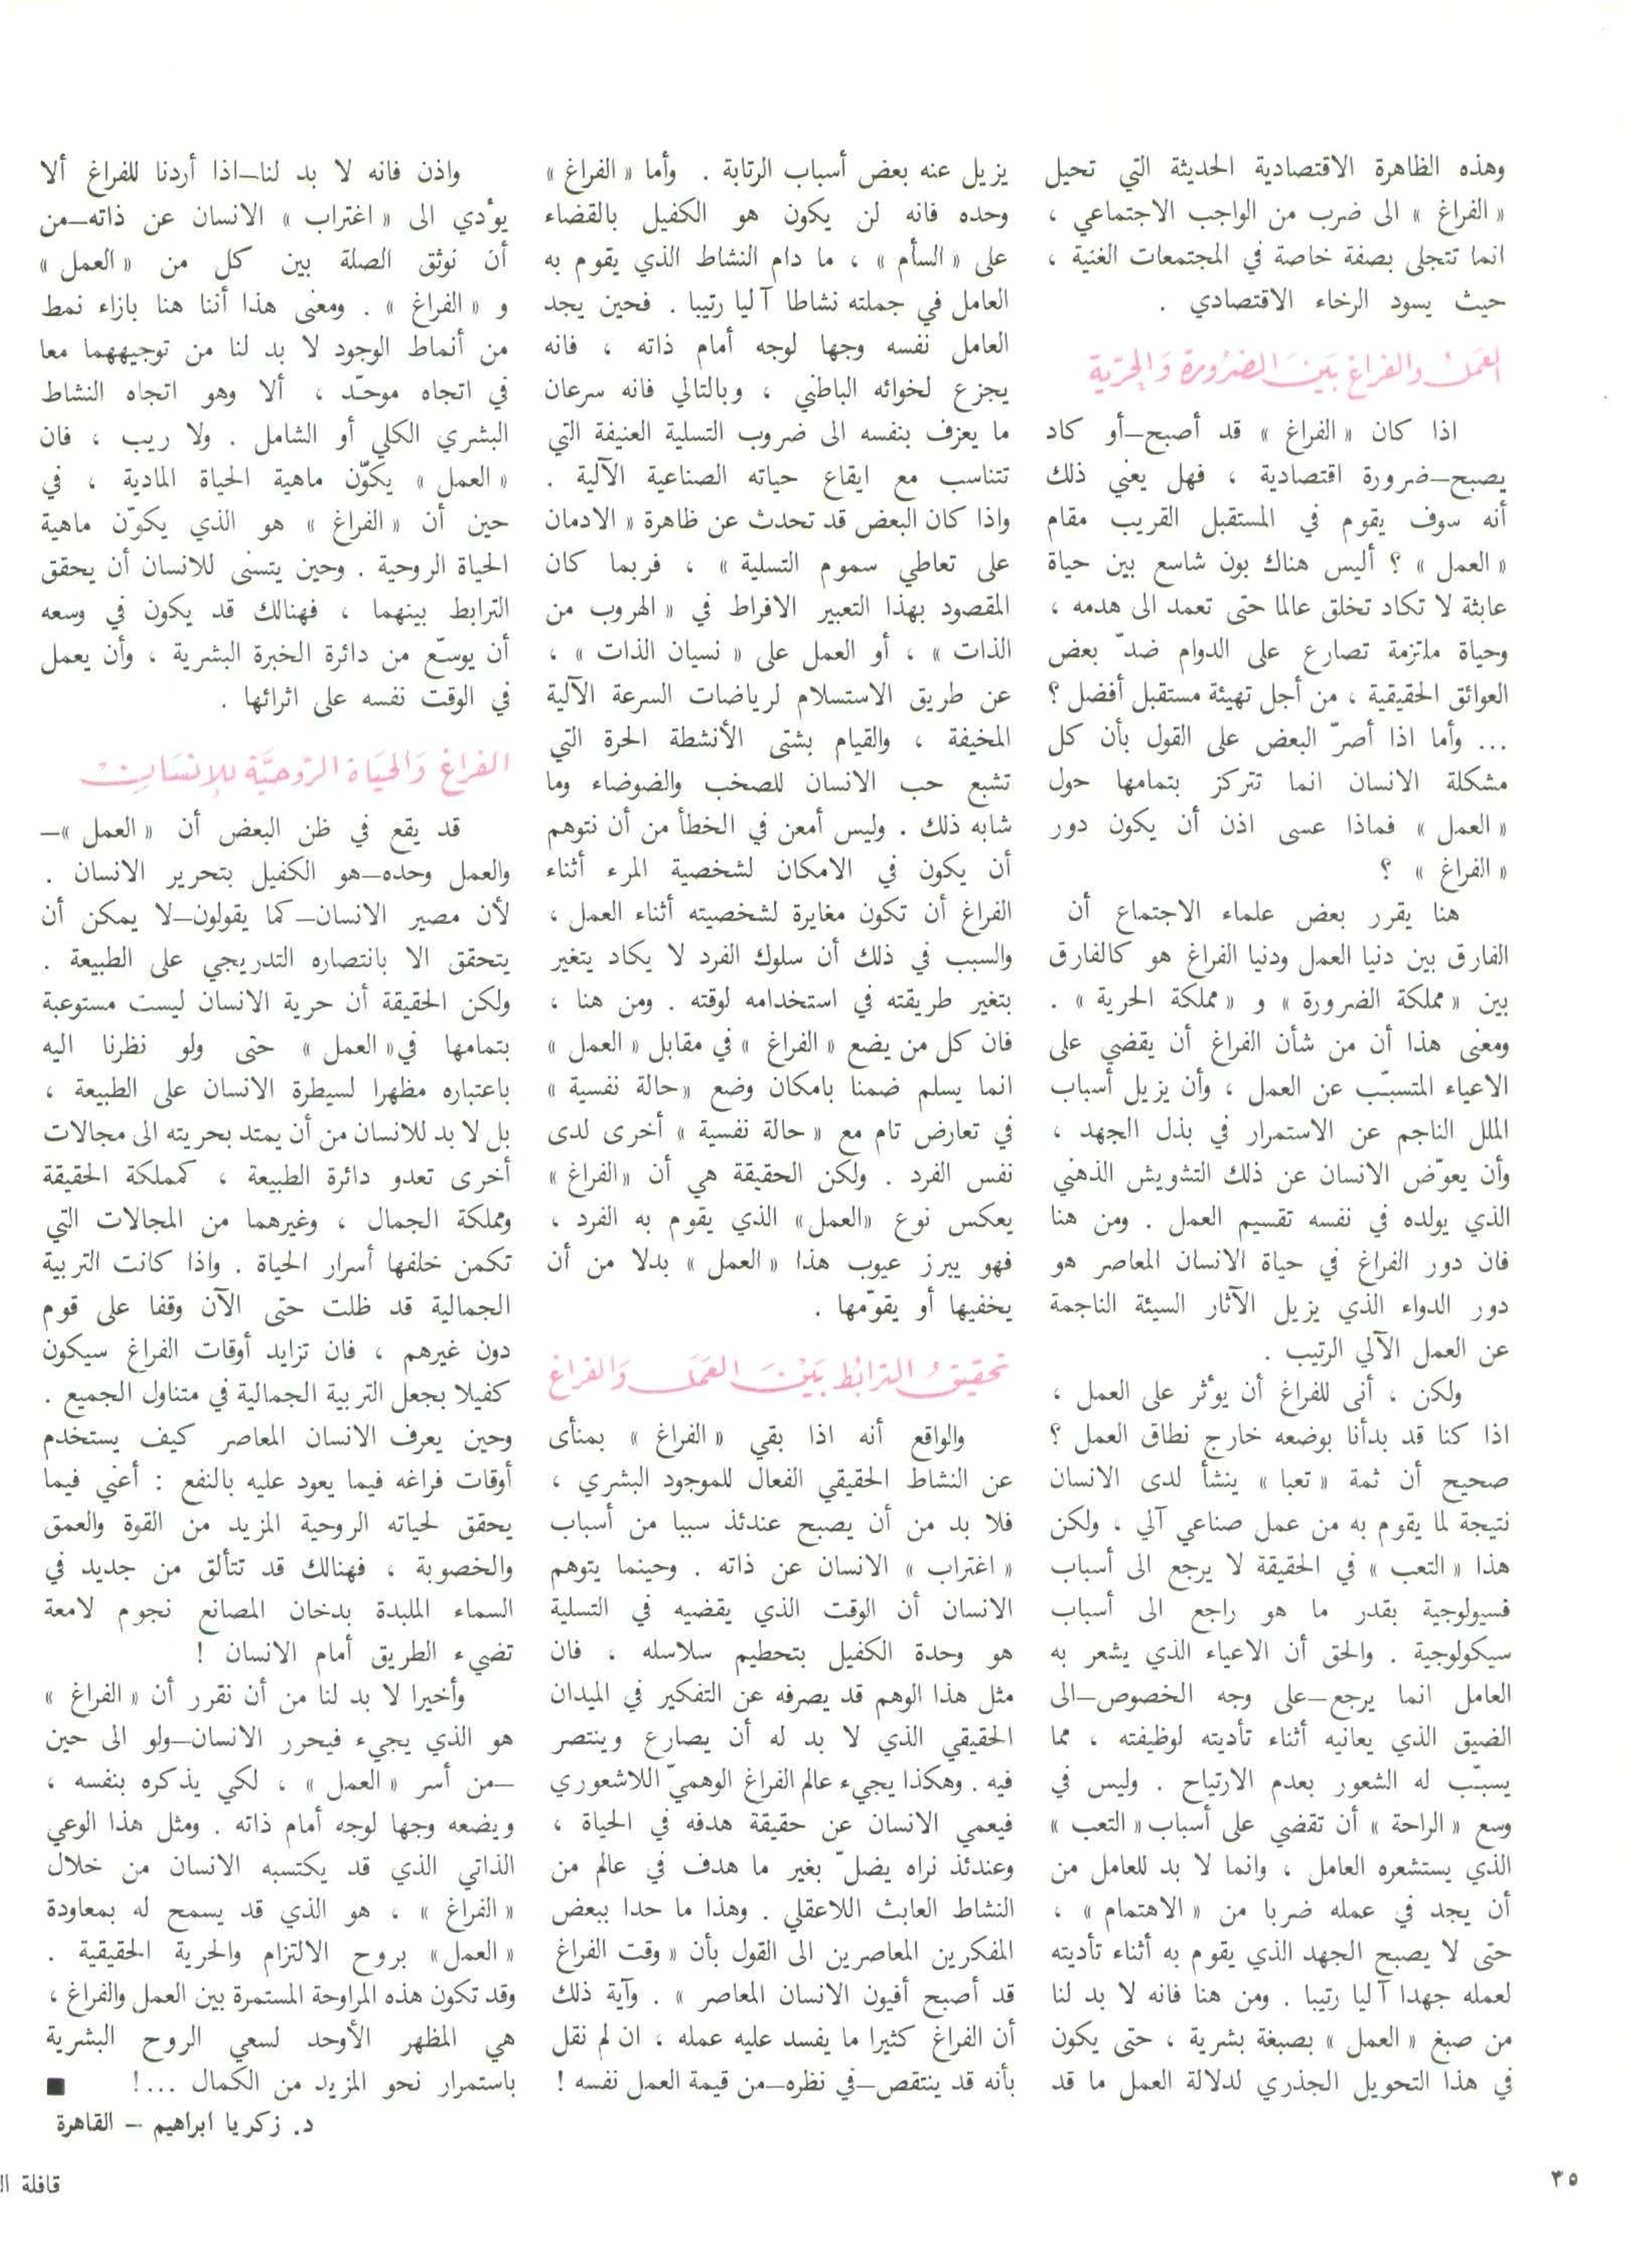 وهذه الظاهرة الاقتصادية الحديثة التي تحيل
« الفراغ » الى ضرب من الواجب الاجتماعي ،
انما تتجلى بصفة خاصة في المجتمعات الغنية ،
حيث يسود الرخاء الاقتصادي .
العمل والفراغ بين الضرورة والحرية
اذا كان « الفراغ » قد أصبح—أو كاد
يصبح—ضرورة اقتصادية ، فهل يعني ذلك
أنه سوف يقوم في المستقبل القريب مقام
« العمل » ؟ أليس هناك بون شاسع بين حياة
عابثة لا تكاد تخلق عالما حتى تعمد الى هدمه ،
وحياة ملتزمة تصارع على الدوام ضدّ بعض
العوائق الحقيقية ، من أجل تهيئة مستقبل أفضل ؟
... وأما اذا أصرّ البعض على القول بأن كل
مشكلة الانسان انما تتركز بتمامها حول
« العمل » فماذا عسى اذن أن يكون دور
« الفراغ » ؟
هنا يقرر بعض علماء الاجتماع أن
الفارق بين دنيا العمل ودنيا الفراغ هو كالفارق
بين « مملكة الضرورة » و « مملكة الحرية » .
ومعنى هذا أن من شأن الفراغ أن يقضي على
الاعياء المتسبّب عن العمل ، وأن يزيل أسباب
الملل الناجم عن الاستمرار في بذل الجهد ،
وأن يعوّض الانسان عن ذلك التشويش الذهني
الذي يولده في نفسه تقسيم العمل . ومن هنا
فان دور الفراغ في حياة الانسان المعاصر هو
دور الدواء الذي يزيل الآثار السيئة الناجمة
عن العمل الآلي الرتيب .
ولكن ، أنى للفراغ أن يؤثر على العمل ،
اذا كنا قد بدأنا بوضعه خارج نطاق العمل ؟
صحيح أن ثمة « تعبا » ينشأ لدى الانسان
نتيجة لما يقوم به من عمل صناعي آلي ، ولكن
هذا « التعب » في الحقيقة لا يرجع الى أسباب
فسيولوجية بقدر ما هو راجع الى أسباب
سيكولوجية . والحق أن الاعياء الذي يشعر به
العامل انما يرجع—على وجه الخصوص—الى
الضيق الذي يعانيه أثناء تأديته لوظيفته ، مما
يسبّب له الشعور بعدم الارتياح . وليس في
وسع « الراحة » أن تقضي على أسباب « التعب »
الذي يستشعره العامل ، وانما لا بد للعامل من
أن يجد في عمله ضربا من « الاهتمام » ،
حتى لا يصبح الجهد الذي يقوم به أثناء تأديته
لعمله جهدا آليا رتيبا . ومن هنا فانه لا بد لنا
من صبغ « العمل » بصبغة بشرية ، حتى يكون
في هذا التحويل الجذري لدلالة العمل ما قد
يزيل عنه بعض أسباب الرتابة . وأما « الفراغ »
وحده فانه لن يكون هو الكفيل بالقضاء
على « السأم » ، ما دام النشاط الذي يقوم به
العامل في جملته نشاطا آليا رتيبا . فحين يجد
العامل نفسه وجها لوجه أمام ذاته ، فانه
يجزع لخوائه الباطني ، وبالتالي فانه سرعان
ما يعزف بنفسه الى ضروب التسلية العنيفة التي
تتناسب مع ايقاع حياته الصناعية الآلية .
واذا كان البعض قد تحدث عن ظاهرة « الادمان
على تعاطي سموم التسلية » ، فربما كان
المقصود بهذا التعبير الافراط في « الهروب من
الذات » ، أو العمل على « نسيان الذات » ،
عن طريق الاستسلام لرياضات السرعة الآلية
المخيفة ، والقيام بشتى الأنشطة الحرة التي
تشبع حب الانسان للصخب والضوضاء وما
شابه ذلك . وليس أمعن في الخطأ من أن نتوهم
أن يكون في الامكان لشخصية المرء أثناء
الفراغ أن تكون مغايرة لشخصيته أثناء العمل ،
والسبب في ذلك أن سلوك الفرد لا يكاد يتغير
بتغير طريقته في استخدامه لوقته . ومن هنا ،
فان كل من يضع « الفراغ » في مقابل « العمل »
انما يسلم ضمنا بامكان وضع « حالة نفسية »
في تعارض تام مع « حالة نفسية » أخرى لدى
نفس الفرد . ولكن الحقيقة هي أن « الفراغ »
يعكس نوع « العمل » الذي يقوم به الفرد ،
فهو يبرز عيوب هذا « العمل » بدلا من أن
يخفيها أو يقوّمها .
تحقيق الترابط بين العمل والفراغ
والواقع أنه اذا بقي « الفراغ » بمنأى
عن النشاط الحقيقي الفعال للموجود البشري ،
فلا بد من أن يصبح عندئذ سببا من أسباب
« اغتراب » الانسان عن ذاته . وحينما يتوهم
الانسان أن الوقت الذي يقضيه في التسلية
هو وحدة الكفيل بتحطيم سلاسله ، فان
مثل هذا الوهم قد يصرفه عن التفكير في الميدان
الحقيقي الذي لا بد له أن يصارع وينتصر
فيه . وهكذا يجيء عالم الفراغ الوهميّ اللاشعوري
فيعمي الانسان عن حقيقة هدفه في الحياة ،
وعندئذ نراه يضلّ بغير ما هدف في عالم من
النشاط العابث اللاعقلي . وهذا ما حدا ببعض
المفكرين المعاصرين الى القول بأن « وقت الفراغ
قد أصبح أفيون الانسان المعاصر » . وآية ذلك
أن الفراغ كثيرا ما يفسد عليه عمله ، ان لم نقل
بأنه قد ينتقص—في نظره—من قيمة العمل نفسه !
واذن فانه لا بد لنا—اذا أردنا للفراغ ألا
يؤدي الى « اغتراب » الانسان عن ذاته—من
أن نوثق الصلة بين كل من « العمل »
و « الفراغ » . ومعنى هذا أننا هنا بازاء نمط
من أنماط الوجود لا بد لنا من توجيههما معا
في اتجاه موحّد ، ألا وهو اتجاه النشاط
البشري الكلي أو الشامل . ولا ريب ، فان
« العمل » يكوّن ماهية الحياة المادية ، في
حين أن « الفراغ » هو الذي يكوّن ماهية
الحياة الروحية . وحين يتسنى للانسان أن يحقق
الترابط بينهما ، فهنالك قد يكون في وسعه
أن يوسّع من دائرة الخبرة البشرية ، وأن يعمل
في الوقت نفسه على اثرائها .
الفراغ والحياة الروحيّة للإنسان
قد يقع في ظن البعض أن « العمل »—
والعمل وحده—هو الكفيل بتحرير الانسان .
لأن مصير الانسان—كما يقولون—لا يمكن أن
يتحقق الا بانتصاره التدريجي على الطبيعة .
ولكن الحقيقة أن حرية الانسان ليست مستوعبة
بتمامها في « العمل » حتى ولو نظرنا اليه
باعتباره مظهرا لسيطرة الانسان على الطبيعة ،
بل لا بد للانسان من أن يمتد بحريته الى مجالات
أخرى تعدو دائرة الطبيعة ، كمملكة الحقيقة
ومملكة الجمال ، وغيرهما من المجالات التي
تكمن خلفها أسرار الحياة . واذا كانت التربية
الجمالية قد ظلت حتى الآن وقفا على قوم
دون غيرهم ، فان تزايد أوقات الفراغ سيكون
كفيلا بجعل التربية الجمالية في متناول الجميع .
وحين يعرف الانسان المعاصر كيف يستخدم
أوقات فراغه فيما يعود عليه بالنفع : أعني فيما
يحقق لحياته الروحية المزيد من القوة والعمق
والخصوبة ، فهنالك قد تتألق من جديد في
السماء الملبدة بدخان المصانع نجوم لامعة
تضيء الطريق أمام الانسان !
وأخيرا لا بد لنا من أن نقرر أن « الفراغ »
هو الذي يجيء فيحرر الانسان—ولو الى حين
—من أسر « العمل » ، لكي يذكره بنفسه ،
ويضعه وجها لوجه أمام ذاته . ومثل هذا الوعي
الذاتي الذي قد يكتسبه الانسان من خلال
« الفراغ » ، هو الذي قد يسمح له بمعاودة
« العمل » بروح الالتزام والحرية الحقيقية .
وقد تكون هذه المراوحة المستمرة بين العمل والفراغ ،
هي المظهر الأوحد لسعي الروح البشرية
باستمرار نحو المزيد من الكمال ...! ■
د. زكريا ابراهيم – القاهرة
٣٥
قافلة ال